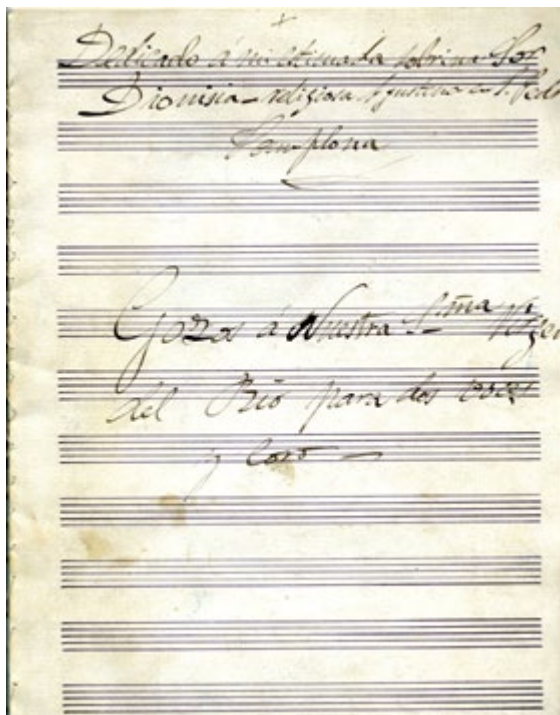 Dedicado á mi estimada sobrina Sor
Dionisia religiosa Agustina S. Pedro
Pamplona
Gozos á Nuestra S_ma Virgen
del Rio para dos voces
y Coro